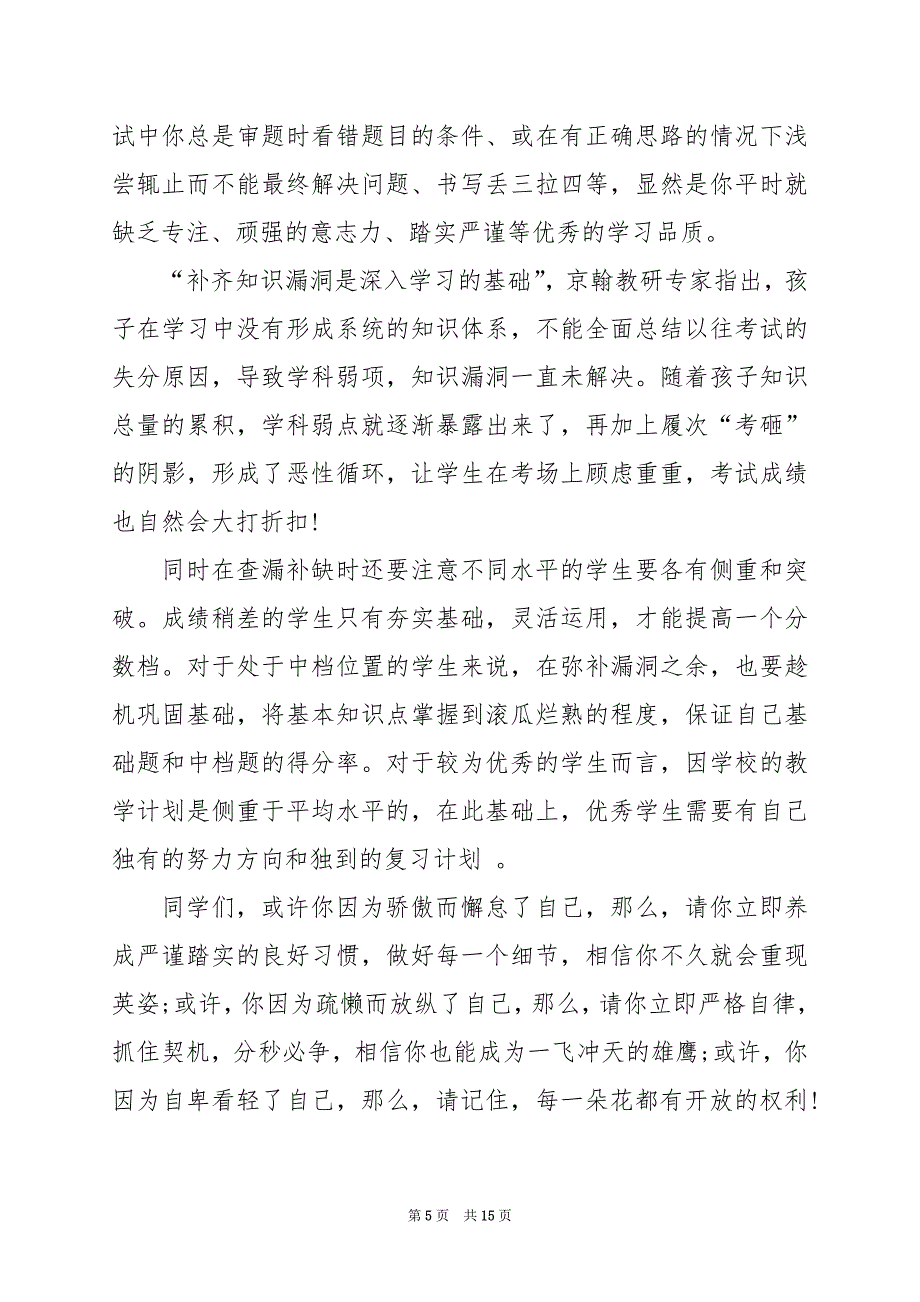 试中你总是审题时看错题目的条件、或在有正确思路的情况下浅
尝辄止而不能最终解决问题、书写丢三拉四等，显然是你平时就
缺乏专注、顽强的意志力、踏实严谨等优秀的学习品质。
“补齐知识漏洞是深入学习的基础”，京翰教研专家指出，孩
子在学习中没有形成系统的知识体系，不能全面总结以往考试的
失分原因，导致学科弱项，知识漏洞一直未解决。随着孩子知识
总量的累积，学科弱点就逐渐暴露出来了，再加上履次“考砸”
的阴影，形成了恶性循环，让学生在考场上顾虑重重，考试成绩
也自然会大打折扣!
同时在查漏补缺时还要注意不同水平的学生要各有侧重和突
破。成绩稍差的学生只有夯实基础，灵活运用，才能提高一个分
数档。对于处于中档位置的学生来说，在弥补漏洞之余，也要趁
机巩固基础，将基本知识点掌握到滚瓜烂熟的程度，保证自己基
础题和中档题的得分率。对于较为优秀的学生而言，因学校的教
学计划是侧重于平均水平的，在此基础上，优秀学生需要有自己
独有的努力方向和独到的复习计划 。
同学们，或许你因为骄傲而懈怠了自己，那么，请你立即养
成严谨踏实的良好习惯，做好每一个细节，相信你不久就会重现
英姿;或许，你因为疏懒而放纵了自己，那么，请你立即严格自律，
抓住契机，分秒必争，相信你也能成为一飞冲天的雄鹰;或许，你
因为自卑看轻了自己，那么，请记住，每一朵花都有开放的权利!
第 5 页 共 15 页